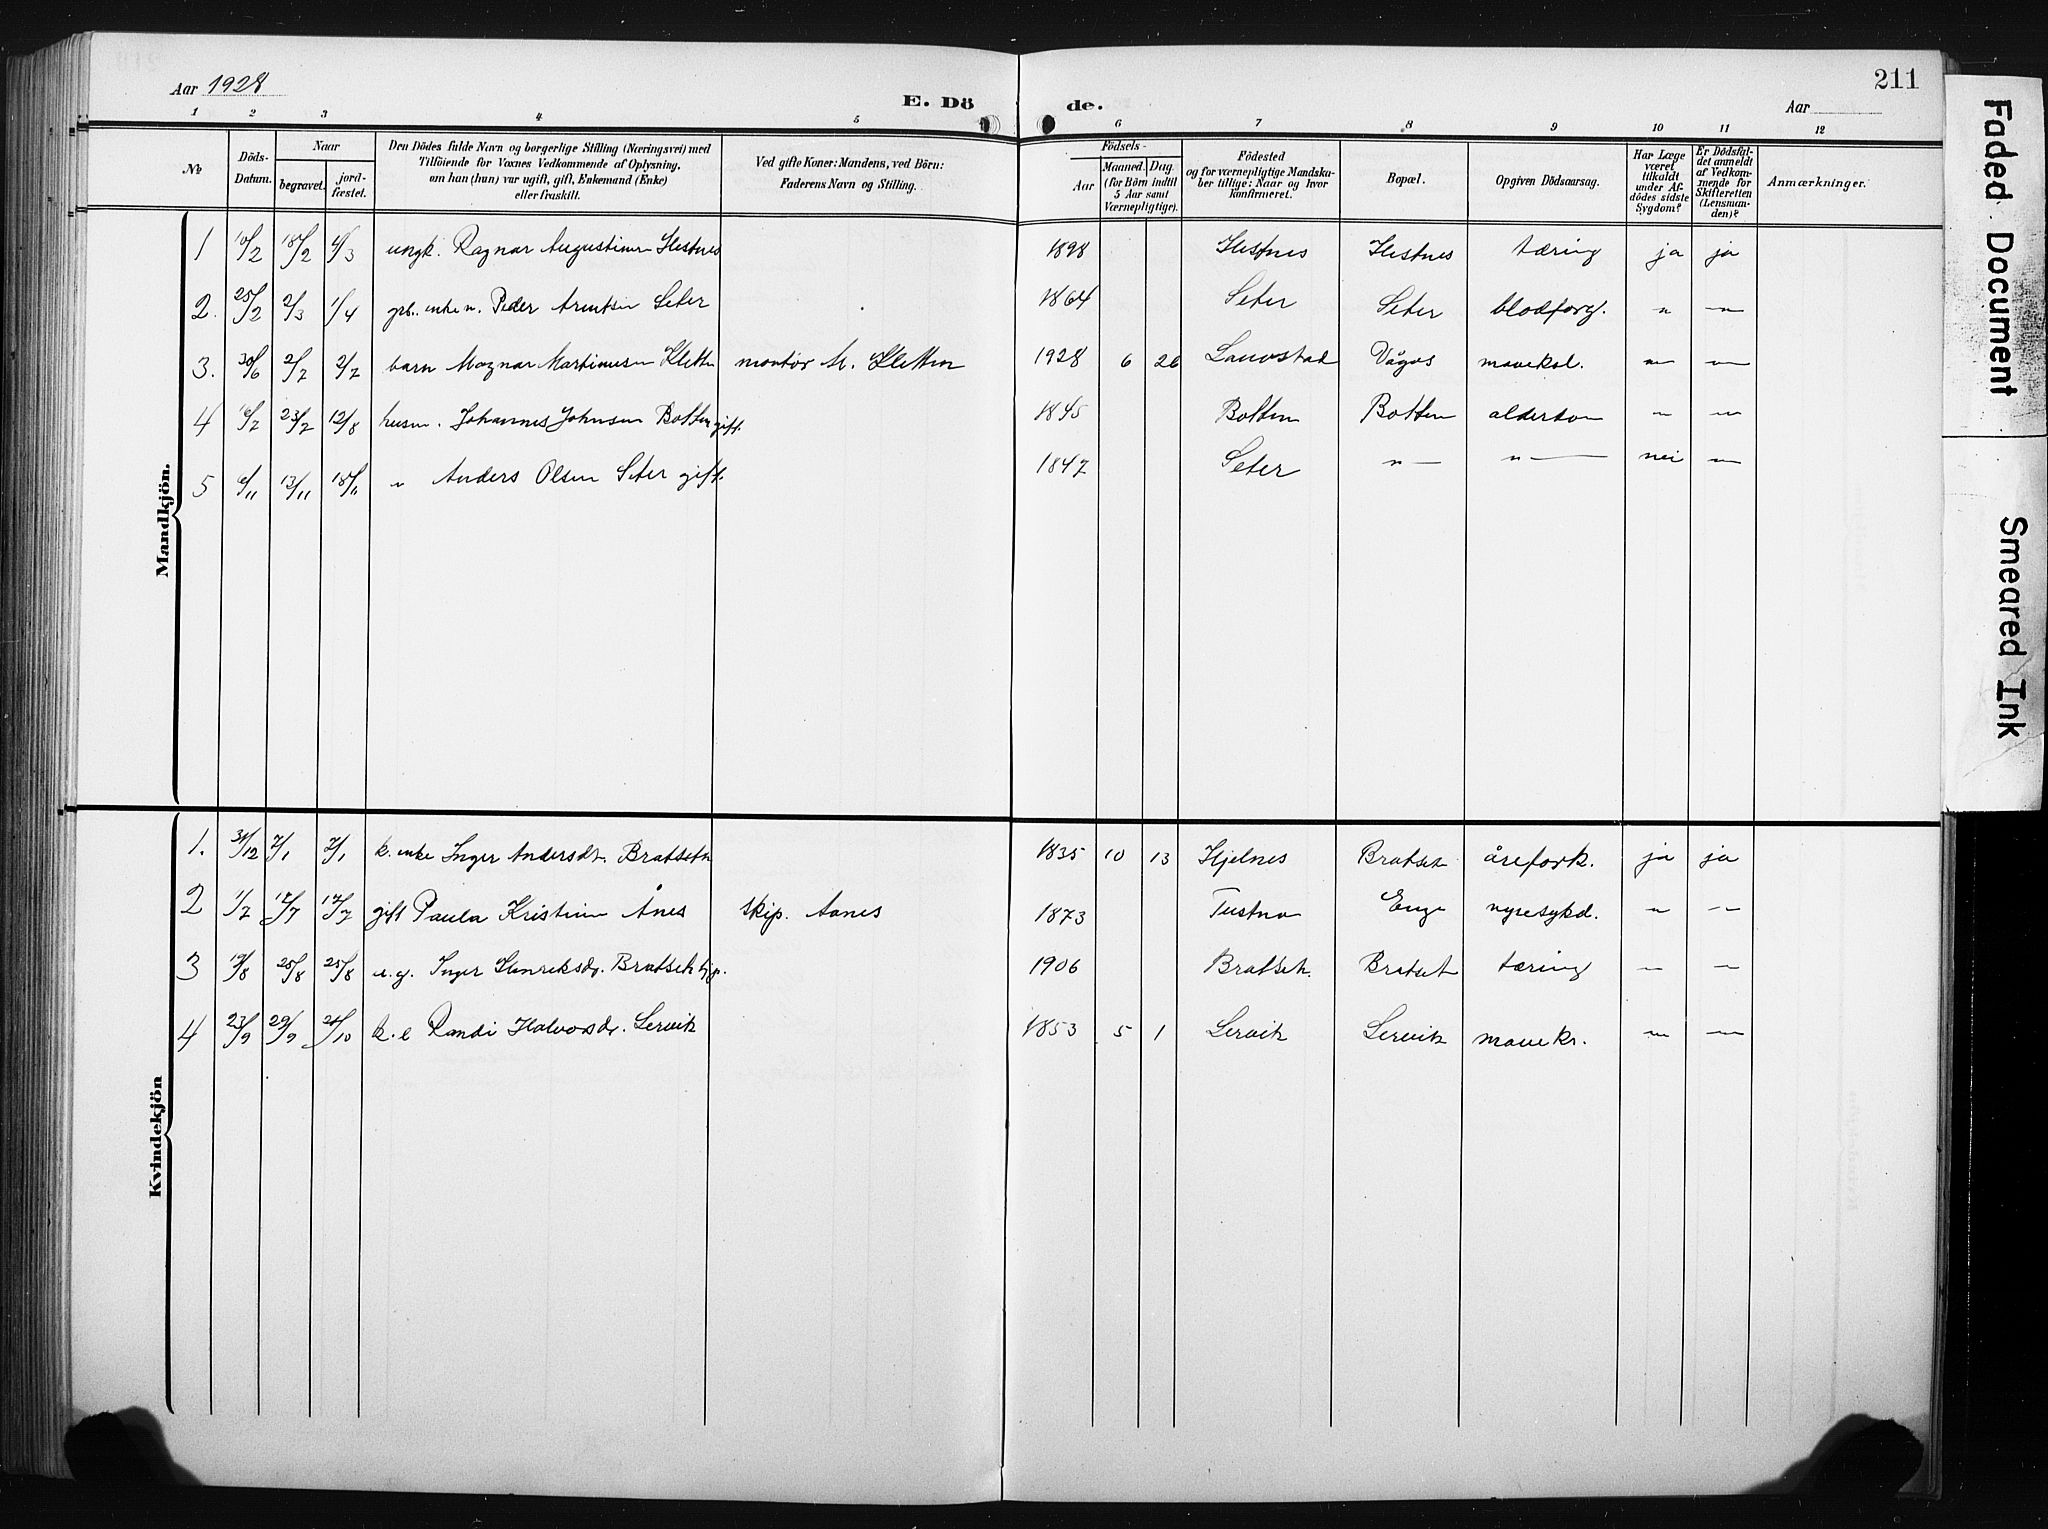 Aar 1928
E. Dö de.
Aar
211
1 2 3 4 5 6 7 8 9 10 11 12
No
Döds-Datum.
Naar
begravet.
jord-fæstet.
Den Dödes fulde Navn og borgerlige Stilling (Næringsvei) med
Tilföiende for Voxnes Vedkommende af Oplysning,
om han (hun) var ugift, gift, Enkemand (Enke)
eller fraskilt.
Ved gifte Koner: Mandens, ved Börn:
Faderens Navn og Stilling.
Födsels-
Aar
Maaned. Dag.
(for Börn indtil
5 Aar samt
Værnepligtige).
Födested
og for værnepligtige Mandska-
ber tillige: Naar og hvor
konfirmeret.
Bopæl.
Opgiven Dödsaarsag.
Har Læge
været
tilkaldt
under Af-
dödes sidste
Sygdom?
Er Dödsfal-
det anmeldt
af Vedkom-
mende for
Skifteretten
(Lensman-
den)?
Anmærkninger.
Mandkjön.
1 10/2 18/2 4/3 ungk. Ragnar Augustinsen Hestnes 1898 Hestnes Hestnes tæring ja ja
2. 25/2 2/3 1/4 gb. enkem. Peder Arentsen Seter 1864 Seter Seter blodforg. " —
3. 30/6 2/7 2/7 barn Magnar Martinusen Kletten montör M. Kletten 1928 6 26 Laurstad Vågos mavekat. " —
4 16/7 23/7 12/8 husm. Johannes Johnsen Botten gift. 1845 Botten Botten alderdom — —
5 6/11 13/11 18/11 " Anders Olsen Seter gift. 1847 Seter " — " — nei —
Kvindekjön
1. 31/12 7/1 7/1 k. enke Inger Andersdt. Bratseth 1835 10 13 Hjelnes Bratset årefork. ja ja
2 1/7 12/7 12/7 gift Paula Kristine Ånes skip. Aanes 1873 Tustna Enge nyresykd. " —
3 19/8 25/8 25/8 Inger Henriksdr. Bratseth 1906 Bratseth. Bratset tæring — —
4 23/9 29/9 21/10 k. e Randi Halvorsdr. Lervik 1853 5 1 Lervik Lervik mavekr. — —
Faded Document
Smeared Ink